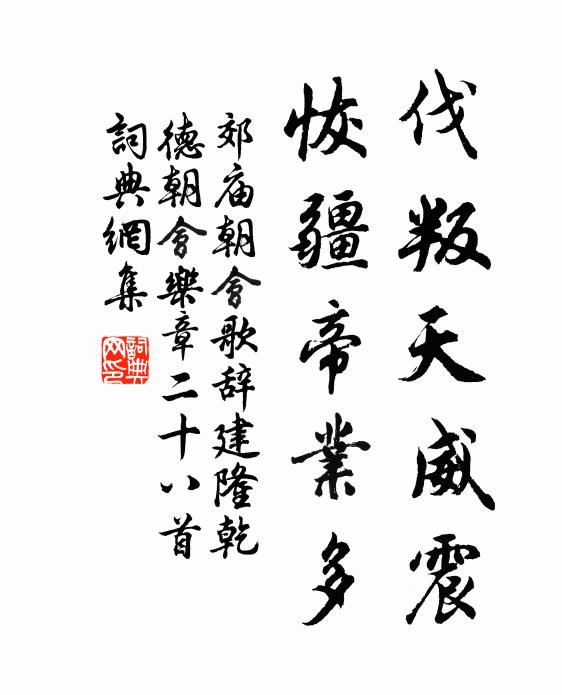 伐叛天威震
恢疆帝業多
郊庙朝會歌辞建隆乾
德朝會樂章二十八首
詞典網集
詞典
网印